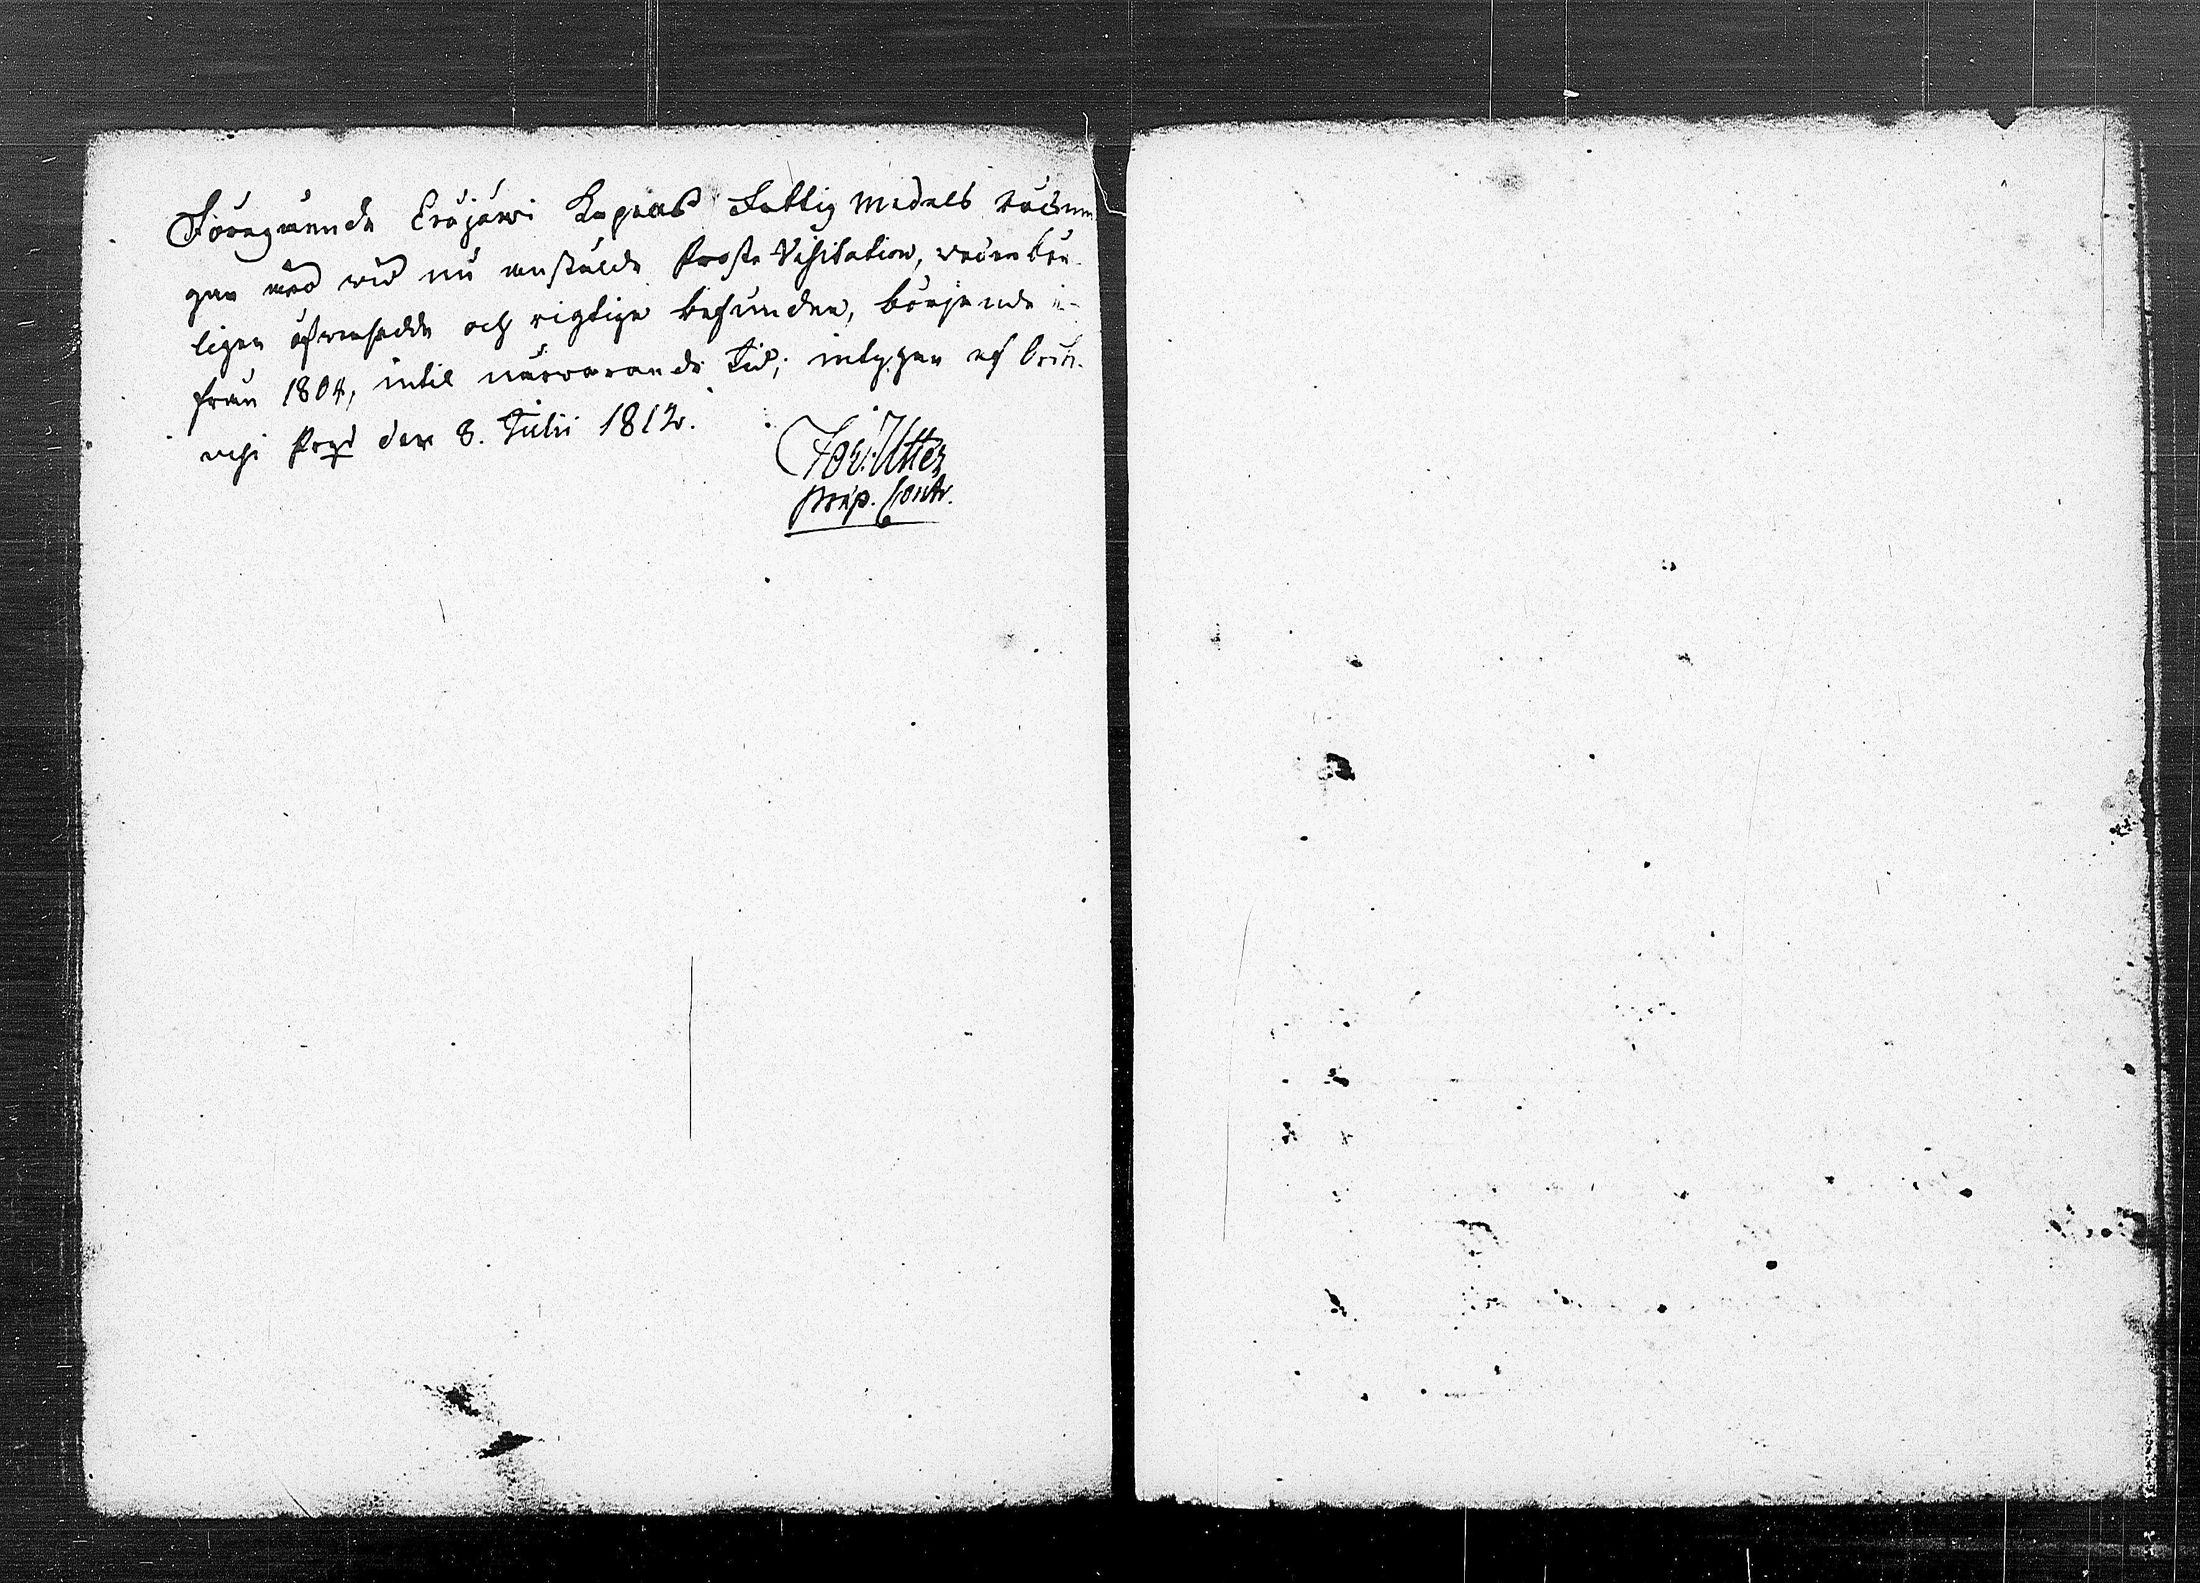 Föregående Eräjärwi Capells Fattig Medels räknin
gar med wid nu anstälde Prosta Visitation, wederbör
ligen öfwersedde och rigtige befundne, börjande
från 1804, intil närwarande Tid; intygar af Ori
vesi Prgd den 8. Julii 1812.
Joh. Utter,
Præp. Contr.